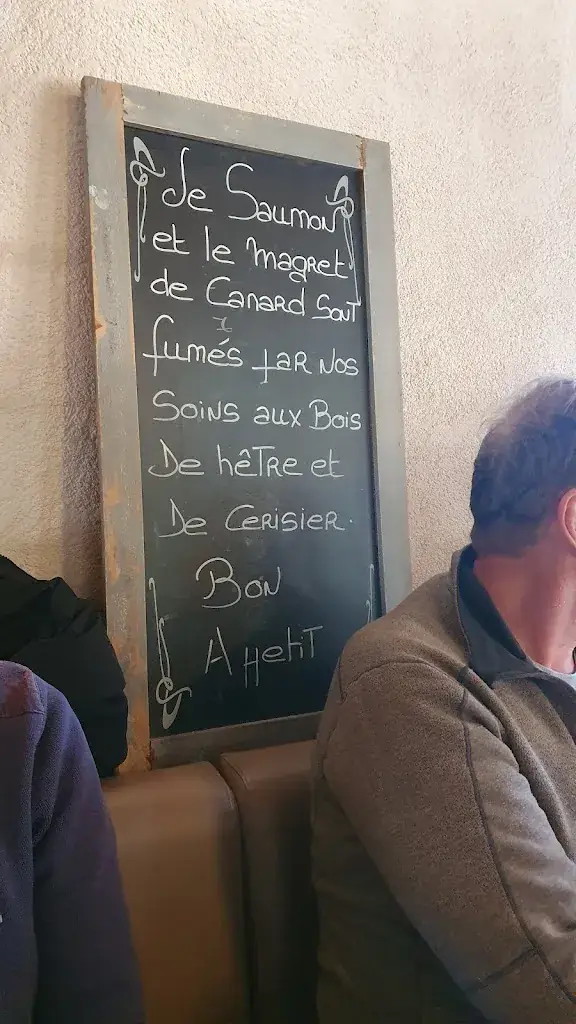 Le Saumon
et le Magret
de Canard Sont
fumés par nos
Soins aux Bois
De hêTre et
De Cerisier.
Bon
Appetit